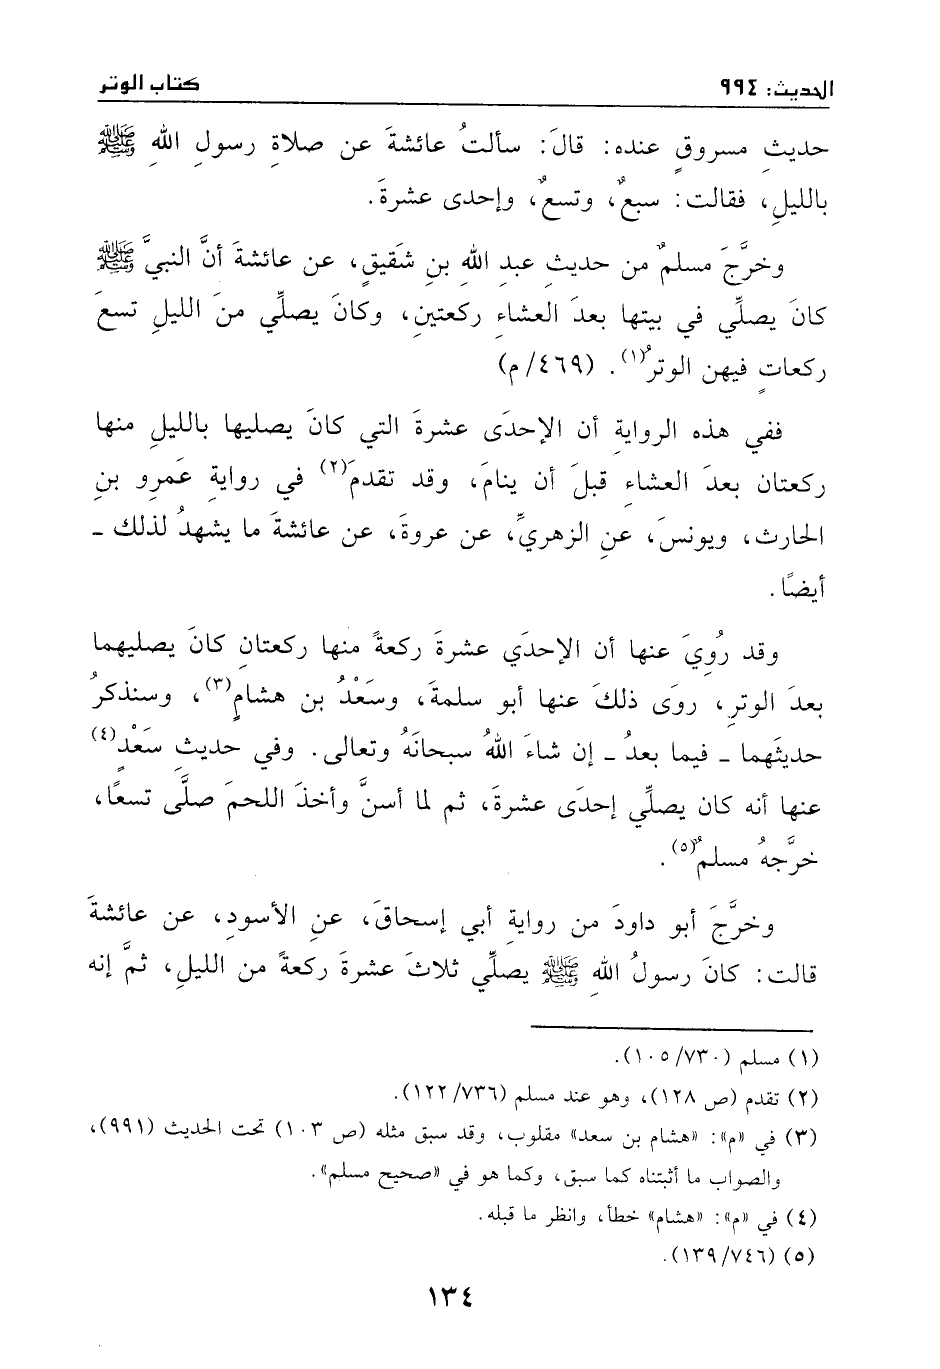 الحديث: ٩٩٤
كتاب الوتر
حديثِ مسروقٍ عنده: قالَ: سألتُ عائشةَ عن صلاةِ رسولِ اللهِ ﷺ
بالليلِ، فقالت: سبعٌ، وتسعٌ، وإحدى عشرةَ.
وخرَّجَ مسلمٌ من حديثِ عبدِ اللهِ بنِ شَقيقٍ، عن عائشةَ أنَّ النبيَّ ﷺ
كانَ يصلِّي في بيتها بعدَ العشاءِ ركعتينِ، وكانَ يصلِّي منَ الليلِ تسعَ
ركعاتٍ فيهن الوترُ(١). (٤٦٩/ م)
ففي هذه الروايةِ أن الإحدَى عشرةَ التي كانَ يصليها بالليلِ منها
ركعتان بعدَ العشاءِ قبلَ أن ينامَ، وقد تقدمَ(٢) في روايةِ عَمرِو بنِ
الحارث، ويونسَ، عنِ الزهريِّ، عن عروةَ، عن عائشةَ ما يشهدُ لذلك ـ
أيضًا.
وقد رُوِيَ عنها أن الإحدَي عشرةَ ركعةً منها ركعتانِ كانَ يصليهما
بعدَ الوترِ، روَى ذلكَ عنها أبو سلمةَ، وسَعْدُ بن هشامٍ(٣)، وسنذكرُ
حديثَهما ـ فيما بعدُ ـ إن شاءَ اللهُ سبحانَهُ وتعالى. وفي حديثِ سَعْدٍ(٤)
عنها أنه كان يصلِّي إحدَى عشرةَ، ثم لما أسنَّ وأخذَ اللحمَ صلَّى تسعًا،
خرَّجهُ مسلمٌ(٥).
وخرَّجَ أبو داودَ من روايةِ أبي إسحاقَ، عنِ الأسودِ، عن عائشةَ
قالت: كانَ رسولُ اللهِ ﷺ يصلِّي ثلاثَ عشرةَ ركعةً من الليلِ، ثمَّ إنه
(١) مسلم (١٠٥/٧٣٠).
(٢) تقدم (ص ١٢٨)، وهو عند مسلم (١٢٢/٧٣٦).
(٣) في «م»: «هشام بن سعد» مقلوب، وقد سبق مثله (ص ١٠٣) تحت الحديث (٩٩١)،
والصواب ما أثبتناه كما سبق، وكما هو في «صحيح مسلم».
(٤) في «م»: «هشام» خطأ، وانظر ما قبله.
(٥) (١٣٩/٧٤٦).
١٣٤